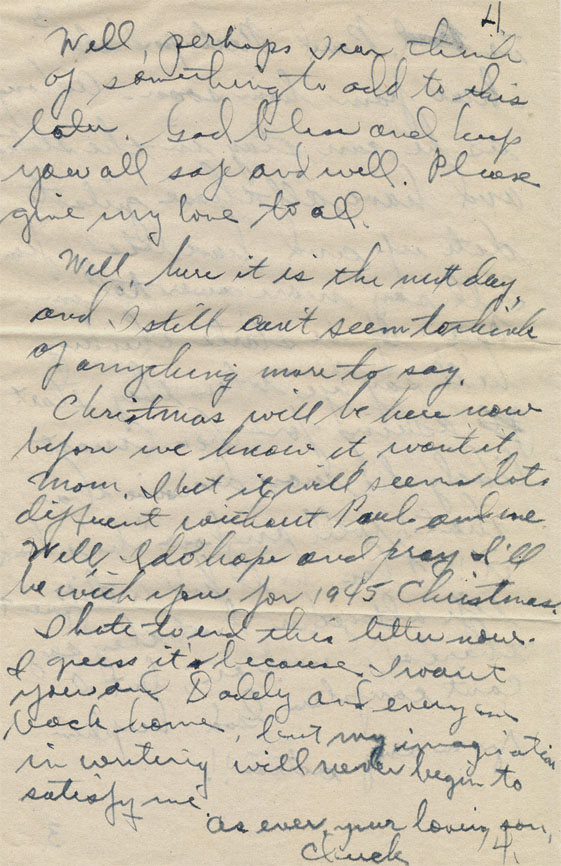 4
Well, perhaps I can think
of something to add to this
later. God bless and keep
you all safe and well. Please
give my love to all.
Well here it is the next day,
and I still can't seem to think
of anything more to say.
Christmas will be here now
before we know it, wont it
Mom. I bet it will seem lots
different without Paul and me.
Well, I do hope and pray I'll
be with you for 1945 Christmas.
I hate to end this letter now.
I guess it's because I want
you and Daddy and everyone
back home, but my imagination
in writing will never begin to
satisfy me.
As ever your loving son,
Chuck 4.